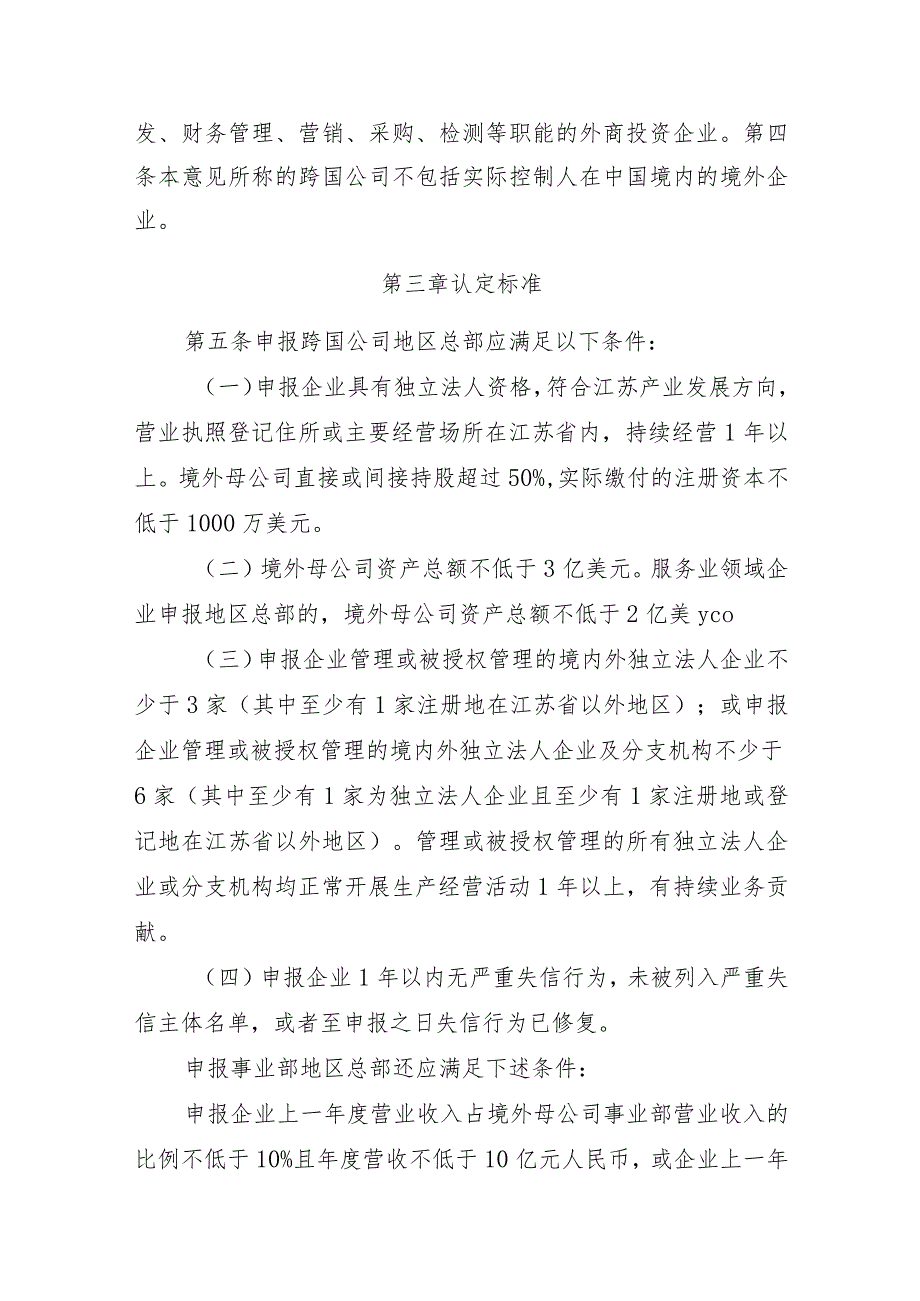 发、财务管理、营销、采购、检测等职能的外商投资企业。第四
条本意见所称的跨国公司不包括实际控制人在中国境内的境外企
业。
第三章认定标准
第五条申报跨国公司地区总部应满足以下条件：
（一）申报企业具有独立法人资格,符合江苏产业发展方向，
营业执照登记住所或主要经营场所在江苏省内，持续经营1年以
上。境外母公司直接或间接持股超过50%,实际缴付的注册资本不
低于1000万美元。
（二）境外母公司资产总额不低于3亿美元。服务业领域企
业申报地区总部的，境外母公司资产总额不低于2亿美yco
（三）申报企业管理或被授权管理的境内外独立法人企业不
少于3家（其中至少有1家注册地在江苏省以外地区）；或申报
企业管理或被授权管理的境内外独立法人企业及分支机构不少于
6家（其中至少有1家为独立法人企业且至少有1家注册地或登
记地在江苏省以外地区）。管理或被授权管理的所有独立法人企
业或分支机构均正常开展生产经营活动1年以上，有持续业务贡
献。
（四）申报企业1年以内无严重失信行为，未被列入严重失
信主体名单，或者至申报之日失信行为已修复。
申报事业部地区总部还应满足下述条件：
申报企业上一年度营业收入占境外母公司事业部营业收入的
比例不低于10%且年度营收不低于10亿元人民币，或企业上一年